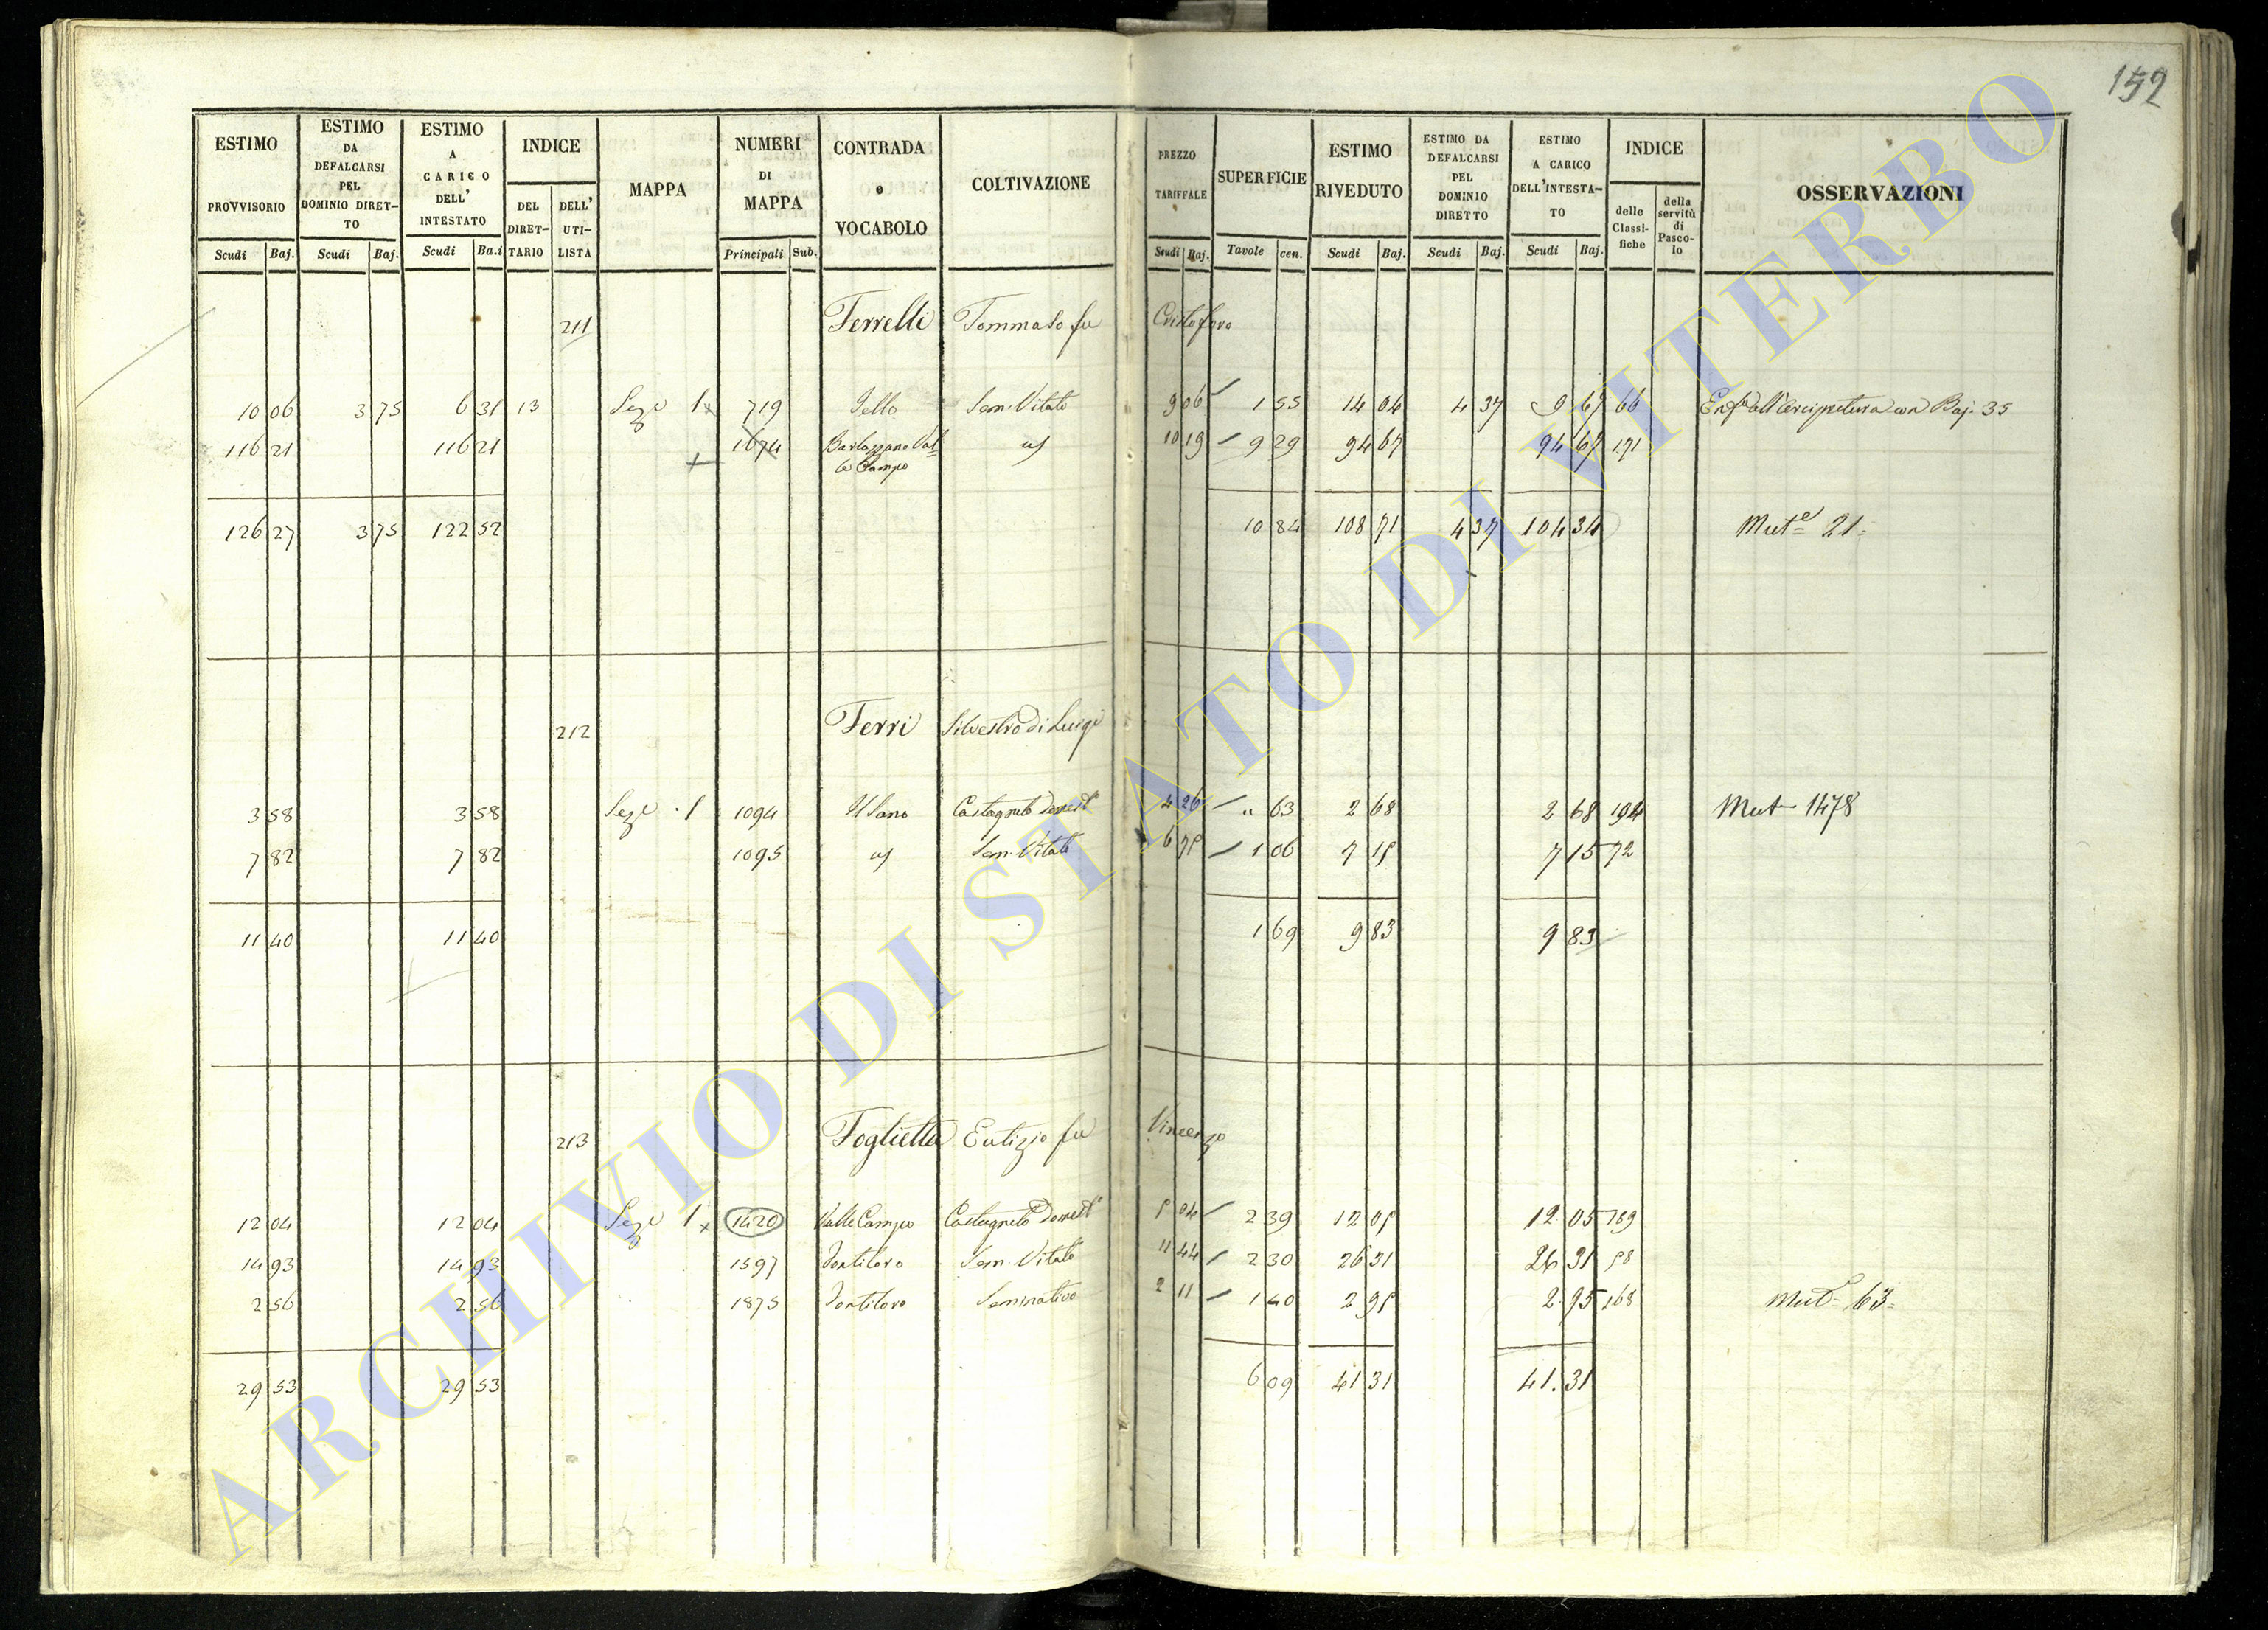 152
ESTIMO PROVVISORIO
ESTIMO DA DEFALCARSI PEL DOMINIO DIRET-TO
ESTIMO A CARICO DELL' INTESTATO
INDICE
DEL DIRET-TARIO
DELL' UTI-LISTA
MAPPA
NUMERI DI MAPPA
CONTRADA o VOCABOLO
COLTIVAZIONE
PREZZO TARIFFALE
SUPERFICIE
ESTIMO RIVEDUTO
ESTIMO DA DEFALCARSI PEL DOMINIO DIRETTO
ESTIMO A CARICO DELL'INTESTA-TO
INDICE
delle Classi-fiche
della servitù di Pasco-lo
OSSERVAZIONI
Scudi Baj. Scudi Baj. Scudi Ba.i Principali Sub. Scudi Baj. Tavole cen. Scudi Baj. Scudi Baj. Scudi Baj.
211 Ferrelli Tommaso fu Cristoforo
10 06 3 75 6 31 13 Seze 1 x 719 Sem. Vitato 9 06 1 55 14 04 4 37 9 67 66 con Baj. 35
116 21 116 21 x 1674 10 19 9 29 94 67 94 67 171
le Campo
126 27 3 75 122 52 10 84 108 71 4 37 104 34 Mut.e 21
212 Ferri Silvestro di Luigi
3 58 3 58 Seze 1 1094 Castagneto Domest° 4 26 " 63 2 68 2 68 194 Mut 1478
7 82 7 82 1095 Sem. Vitato 6 75 1 06 7 15 7 15 72
11 40 11 40 1 69 9 83 9 83
213 Foglietta Eutizio fu Vincenzo
12 04 12 04 Seze 1 x 1420 Valle Campo Castagneto Domest° 5 04 2 39 12 05 12 05 189
14 93 14 93 1597 Sem. Vitato 11 44 2 30 26 31 26 31 58
2 56 2 56 1875 Seminativo 2 11 1 40 2 95 2 95 168 Mut. 63
29 53 29 53 6 09 41 31 41. 31
ARCHIVIO DI STATO DI VITERBO